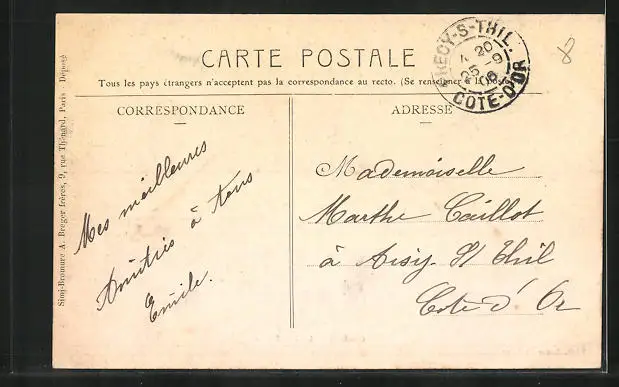 CARTE POSTALE
Tous les pays étrangers n'acceptent pas la correspondance au recto. (Se renseigner à la poste
CORRESPONDANCE
ADRESSE
Mes meilleures
Amitiés à tous
Emile.
Mademoiselle
Marthe Caillot
à Aisy S/ Thil
Cote d'Or
PRECY-S-THIL
4 20
25 -9
06
COTE-D'OR
8
Simi-Bromure A. Breger frères, 9, rue Thénard, Paris - Déposé